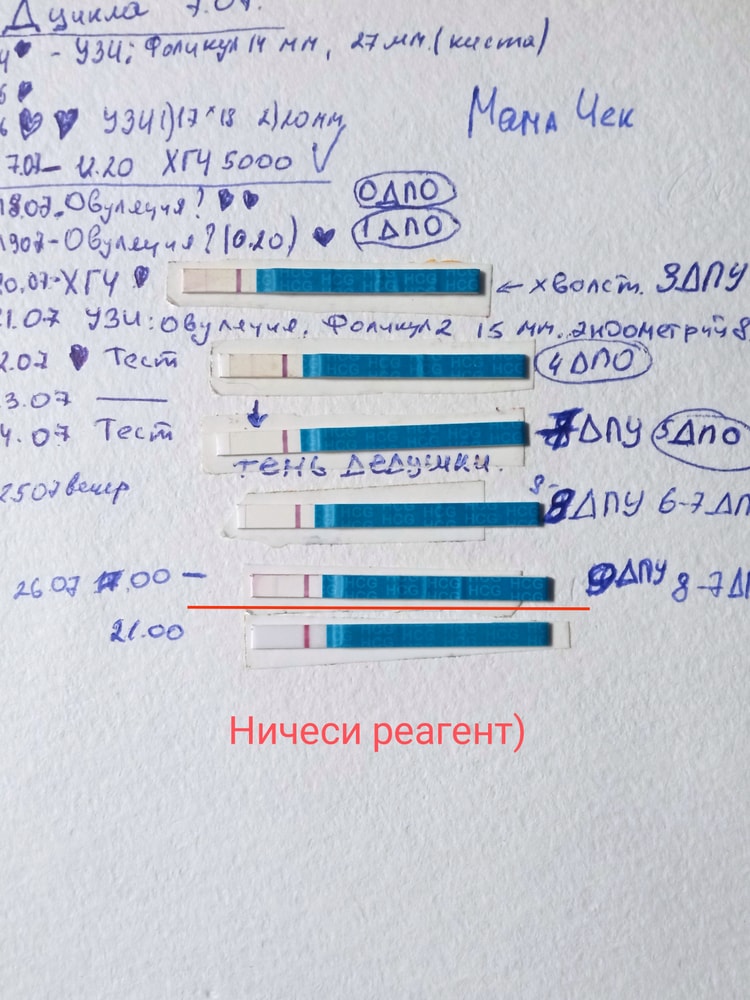 Д цикла 7.07.
4 - УЗИ; Фоликул 14 мм, 27 мм. (киста)
6 УЗИ 1) 17*18 2) 20 мм
Мама Чек
7.07 - 12.20 ХГЧ 5000
18.07 - Овуляция? 0 ДПО
1907 - Овуляция? (0.20) 1 ДПО
20.07 - ХГЧ HCG ← хвост. 3ДПУ
21.07 УЗИ: овуляция, Фоликул 2 15 мм. эндометрий 8
2.07 Тест HCG 4 ДПО
3.07 —
4.07 Тест HCG ДПУ 5 ДПО
тень дедушки.
2507 вечер HCG 8 ДПУ 6-7 ДП
26.07 .00 - HCG 9 ДПУ 8-7 ДП
21.00 HCG
Ничеси реагент)